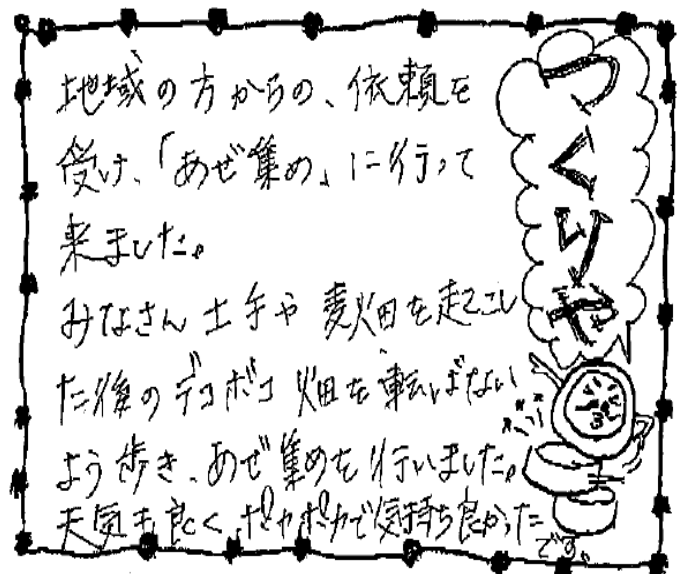 つくりや
地域の方からの、依頼を
受け、「あぜ集め」に行って
来ました。
みなさん土手や麦畑を起こし
た後のデコボコ畑を転ばない
よう歩き、あぜ集めを行いました。
天気も良くポカポカで気持ち良かった
です。